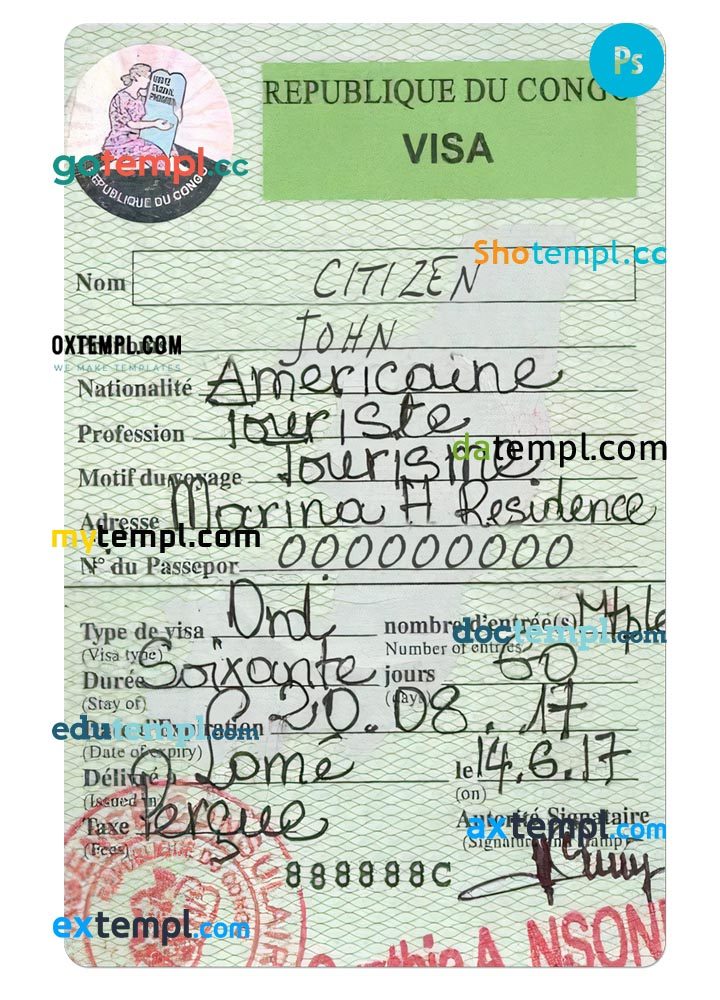 Ps
REPUBLIQUE DU CONGO
VISA
UNITE TRAVAIL PROGRES
gotempl.cc
REPUBLIQUE DU CONGO
Shotempl.cc
Nom CITIZEN
JOHN
OXTEMPL.COM
WE MAKE TEMPLATES
Nationalité Américaine
Profession Touriste
datempl.com
Motif du voyage Tourisme
Adresse Marina H Residence
mytempl.com
N° du Passepor 000000000
Type de visa Ord. nombre d'entrée(s) Mtple
(Visa type) Number of entries
doctempl.com
Durée Soixante jours 60
(Stay of) (days)
Date d'Expiration 20.08.17
edutempl.com
(Date of expiry)
Délivré à Lomé le 14.6.17
(Issued in) (on)
Taxe Perçue Autorité Signataire
(Fees) (Signature and stamp)
axtempl.com
888888C
extempl.com
A. NSONI